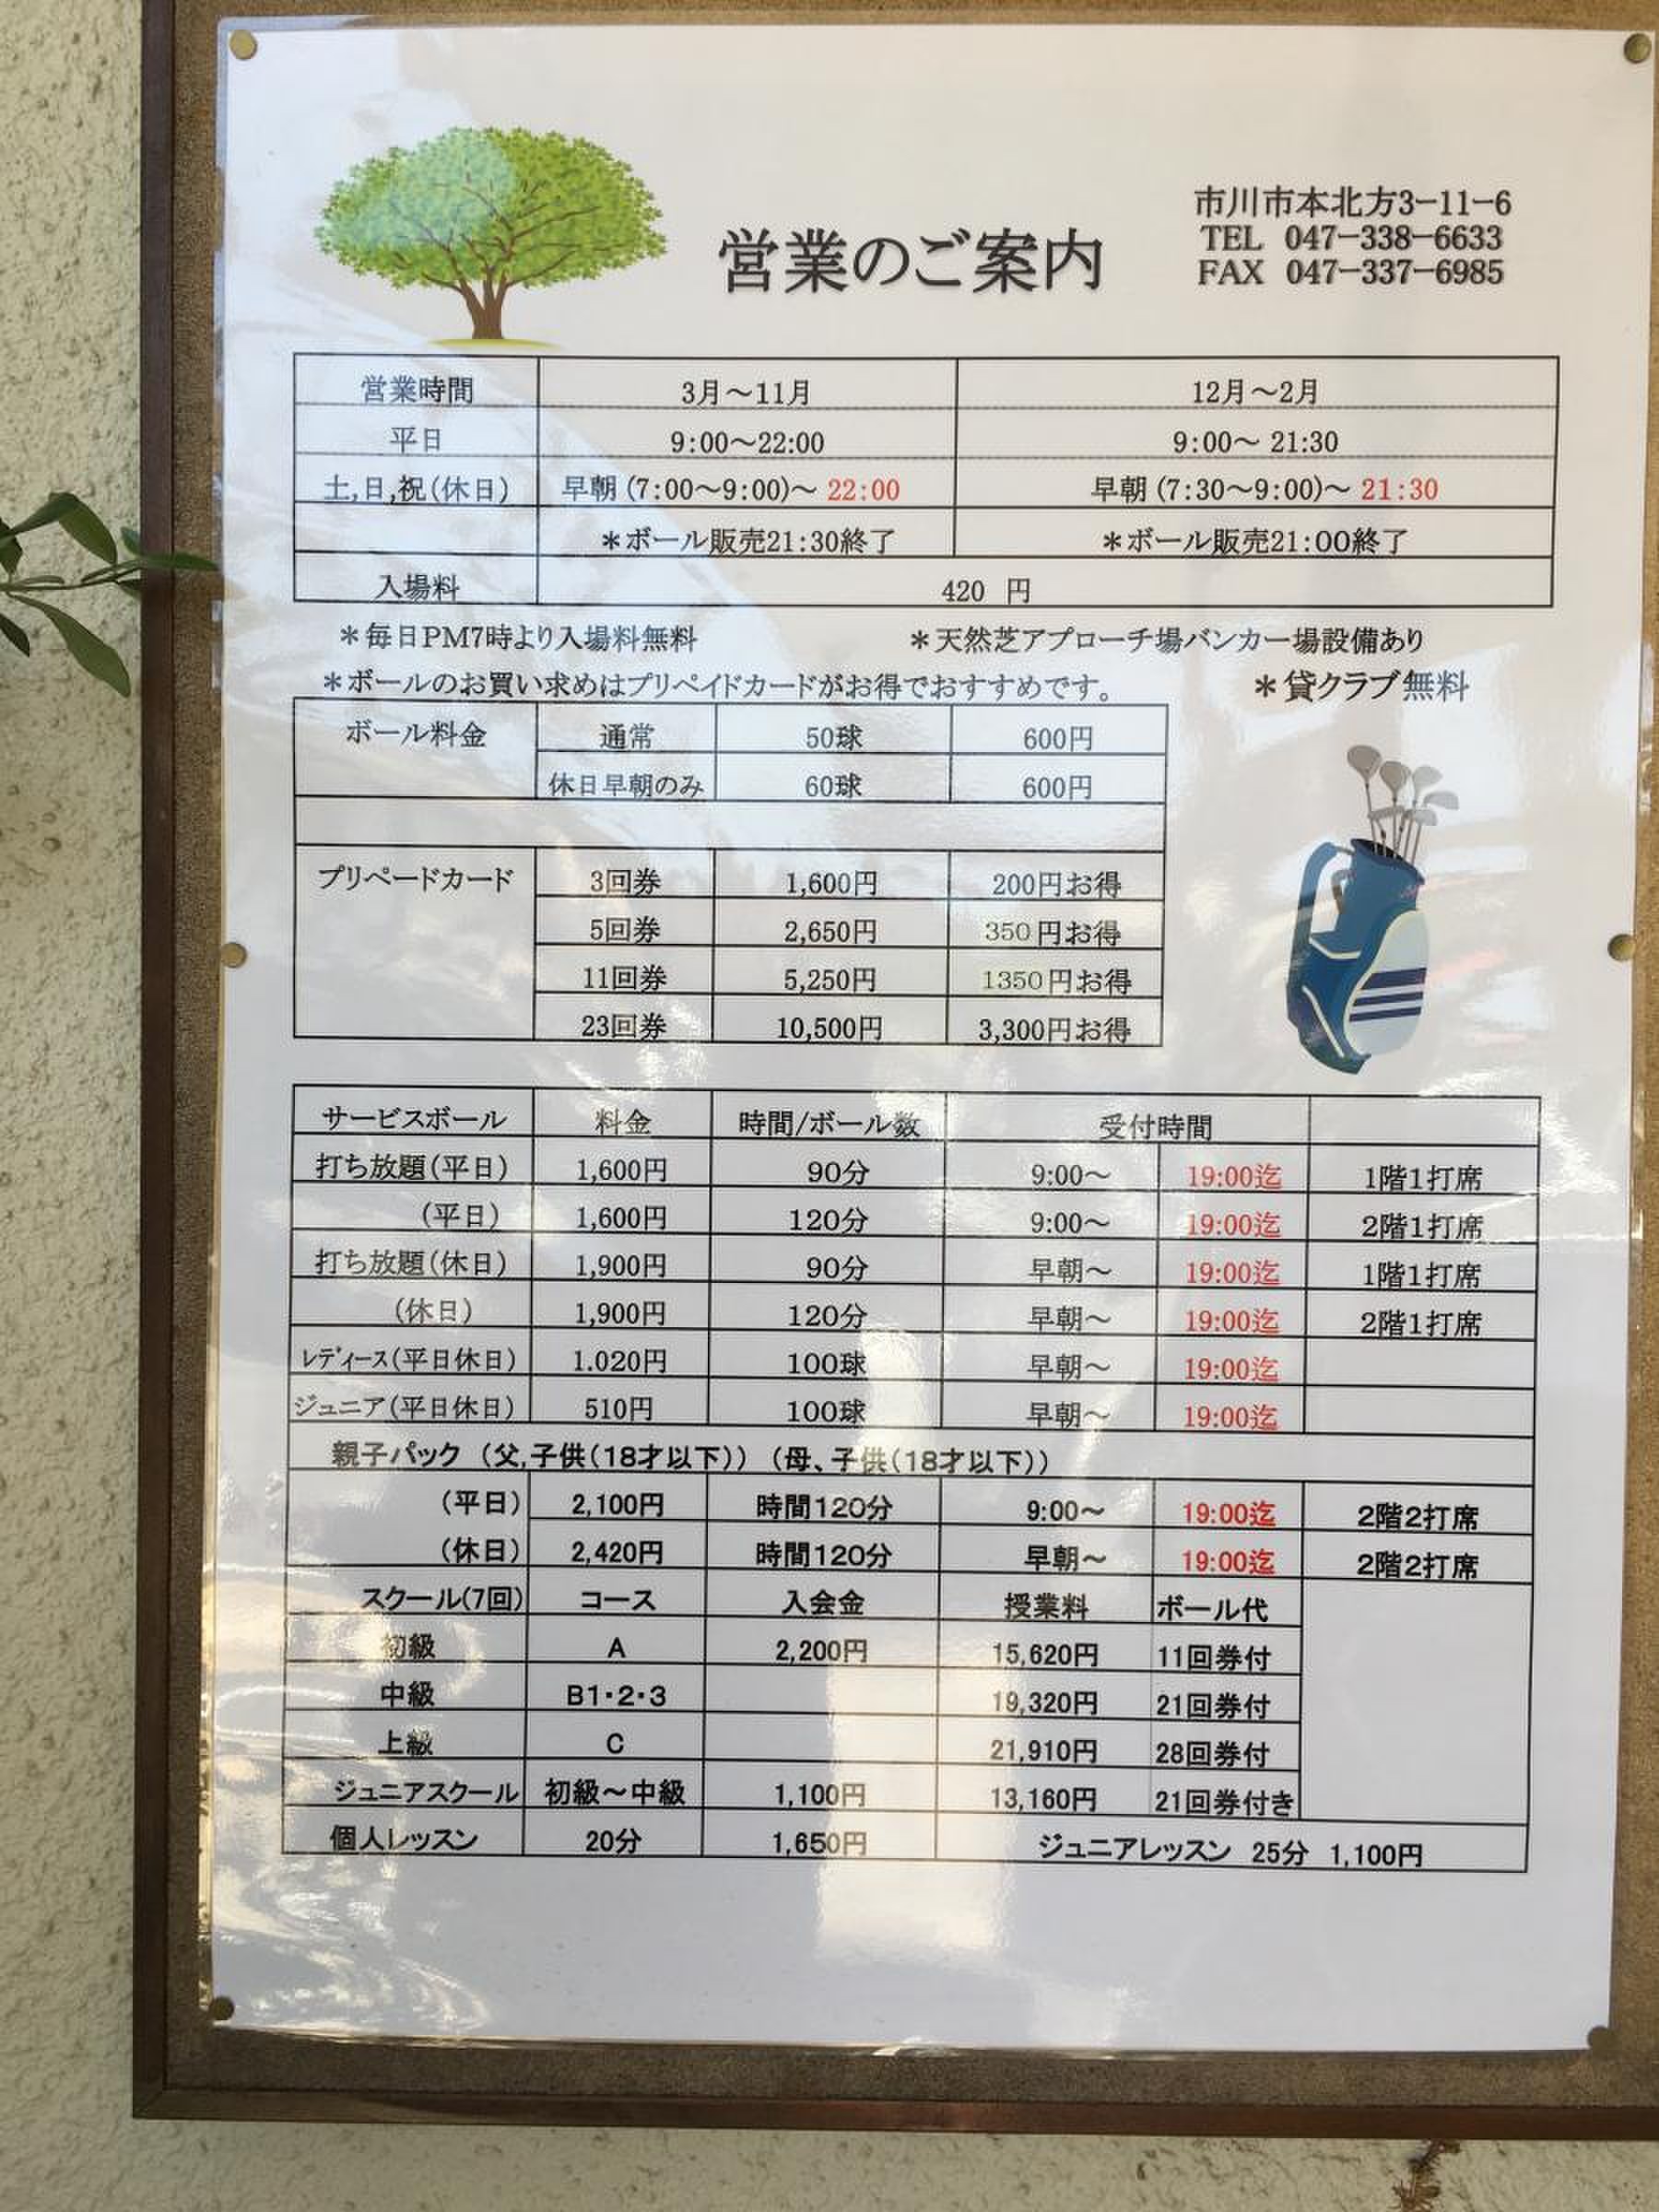 市川市本北方3-11-6
TEL 047-338-6633
FAX 047-337-6985
営業のご案内
営業時間 3月～11月 12月～2月
平日 9:00～22:00 9:00～ 21:30
土,日,祝(休日) 早朝 (7:00～9:00)～ 22:00 早朝 (7:30～9:00)～ 21:30
＊ボール販売21:30終了 ＊ボール販売21:00終了
入場料 420 円
＊毎日PM7時より入場料無料 ＊天然芝アプローチ場バンカー場設備あり
＊ボールのお買い求めはプリペイドカードがお得でおすすめです。 ＊貸クラブ無料
ボール料金 通常 50球 600円
休日早朝のみ 60球 600円
プリペードカード 3回券 1,600円 200円お得
5回券 2,650円 350円お得
11回券 5,250円 1350円お得
23回券 10,500円 3,300円お得
サービスボール 料金 時間/ボール数 受付時間
打ち放題(平日) 1,600円 90分 9:00～ 19:00迄 1階1打席
(平日) 1,600円 120分 9:00～ 19:00迄 2階1打席
打ち放題(休日) 1,900円 90分 早朝～ 19:00迄 1階1打席
(休日) 1,900円 120分 早朝～ 19:00迄 2階1打席
ﾚﾃﾞｨース(平日休日) 1.020円 100球 早朝～ 19:00迄
ジュニア(平日休日) 510円 100球 早朝～ 19:00迄
親子パック (父,子供(18才以下)) (母、子供(18才以下))
(平日) 2,100円 時間120分 9:00～ 19:00迄 2階2打席
(休日) 2,420円 時間120分 早朝～ 19:00迄 2階2打席
スクール(7回) コース 入会金 授業料 ボール代
初級 A 2,200円 15,620円 11回券付
中級 B1・2・3 19,320円 21回券付
上級 C 21,910円 28回券付
ジュニアスクール 初級～中級 1,100円 13,160円 21回券付き
個人レッスン 20分 1,650円 ジュニアレッスン 25分 1,100円